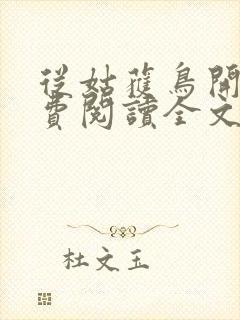 從姑蒦鳥開
費閱讀全文
杜文玉